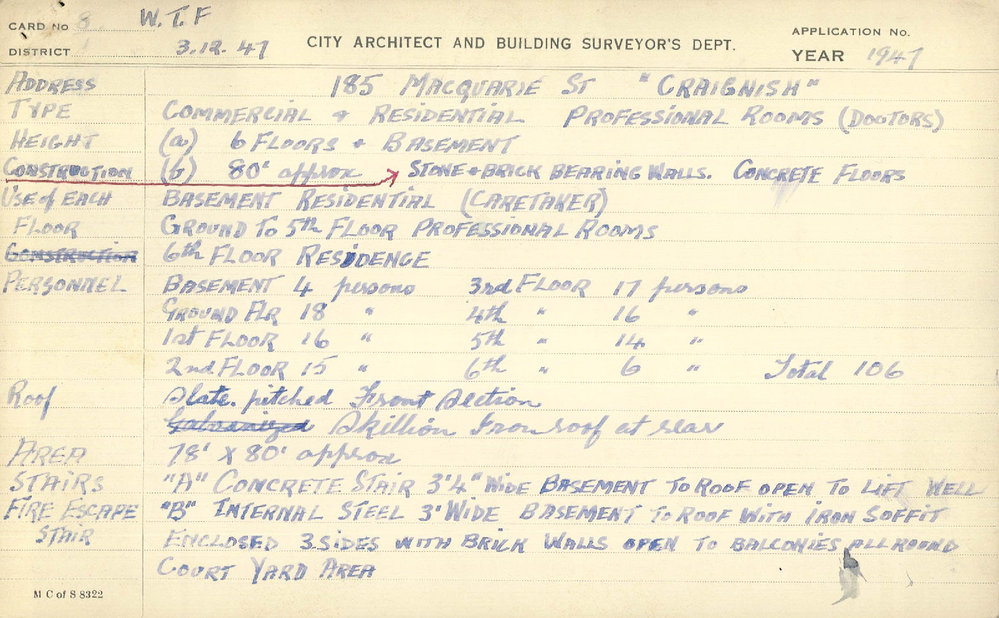 CARD No 8. W.T.F
CITY ARCHITECT AND BUILDING SURVEYOR'S DEPT.
APPLICATION No.
DISTRICT 3.12.47
YEAR 1947
ADDRESS 185 MACQUARIE ST "CRAIGNISH"
TYPE COMMERCIAL & RESIDENTIAL PROFESSIONAL ROOMS (DOCTORS)
HEIGHT (a) 6 FLOORS & BASEMENT
CONSTRUCTION (b) 80' approx STONE & BRICK BEARING WALLS. CONCRETE FLOORS
USE of EACH BASEMENT RESIDENTIAL (CARETAKER)
FLOOR GROUND TO 5th FLOOR PROFESSIONAL ROOMS
CONSTRUCTION 6th FLOOR RESIDENCE
PERSONNEL BASEMENT 4 persons 3rd FLOOR 17 persons
GROUND FLR 18 " 4th " 16 "
1st FLOOR 16 " 5th " 14 "
2nd FLOOR 15 " 6th " 6 " Total 106
Roof Slate. pitched Front Section
Galvanized Skillion Iron roof at rear
AREA 78' X 80' approx
STAIRS "A" CONCRETE STAIR 3'4" WIDE BASEMENT TO ROOF OPEN TO LIFT WELL
FIRE ESCAPE "B" INTERNAL STEEL 3' WIDE BASEMENT TO ROOF WITH IRON SOFFIT
STAIR ENCLOSED 3 SIDES WITH BRICK WALLS OPEN TO BALCONIES ALL ROUND
COURT YARD AREA
M C of S 8322